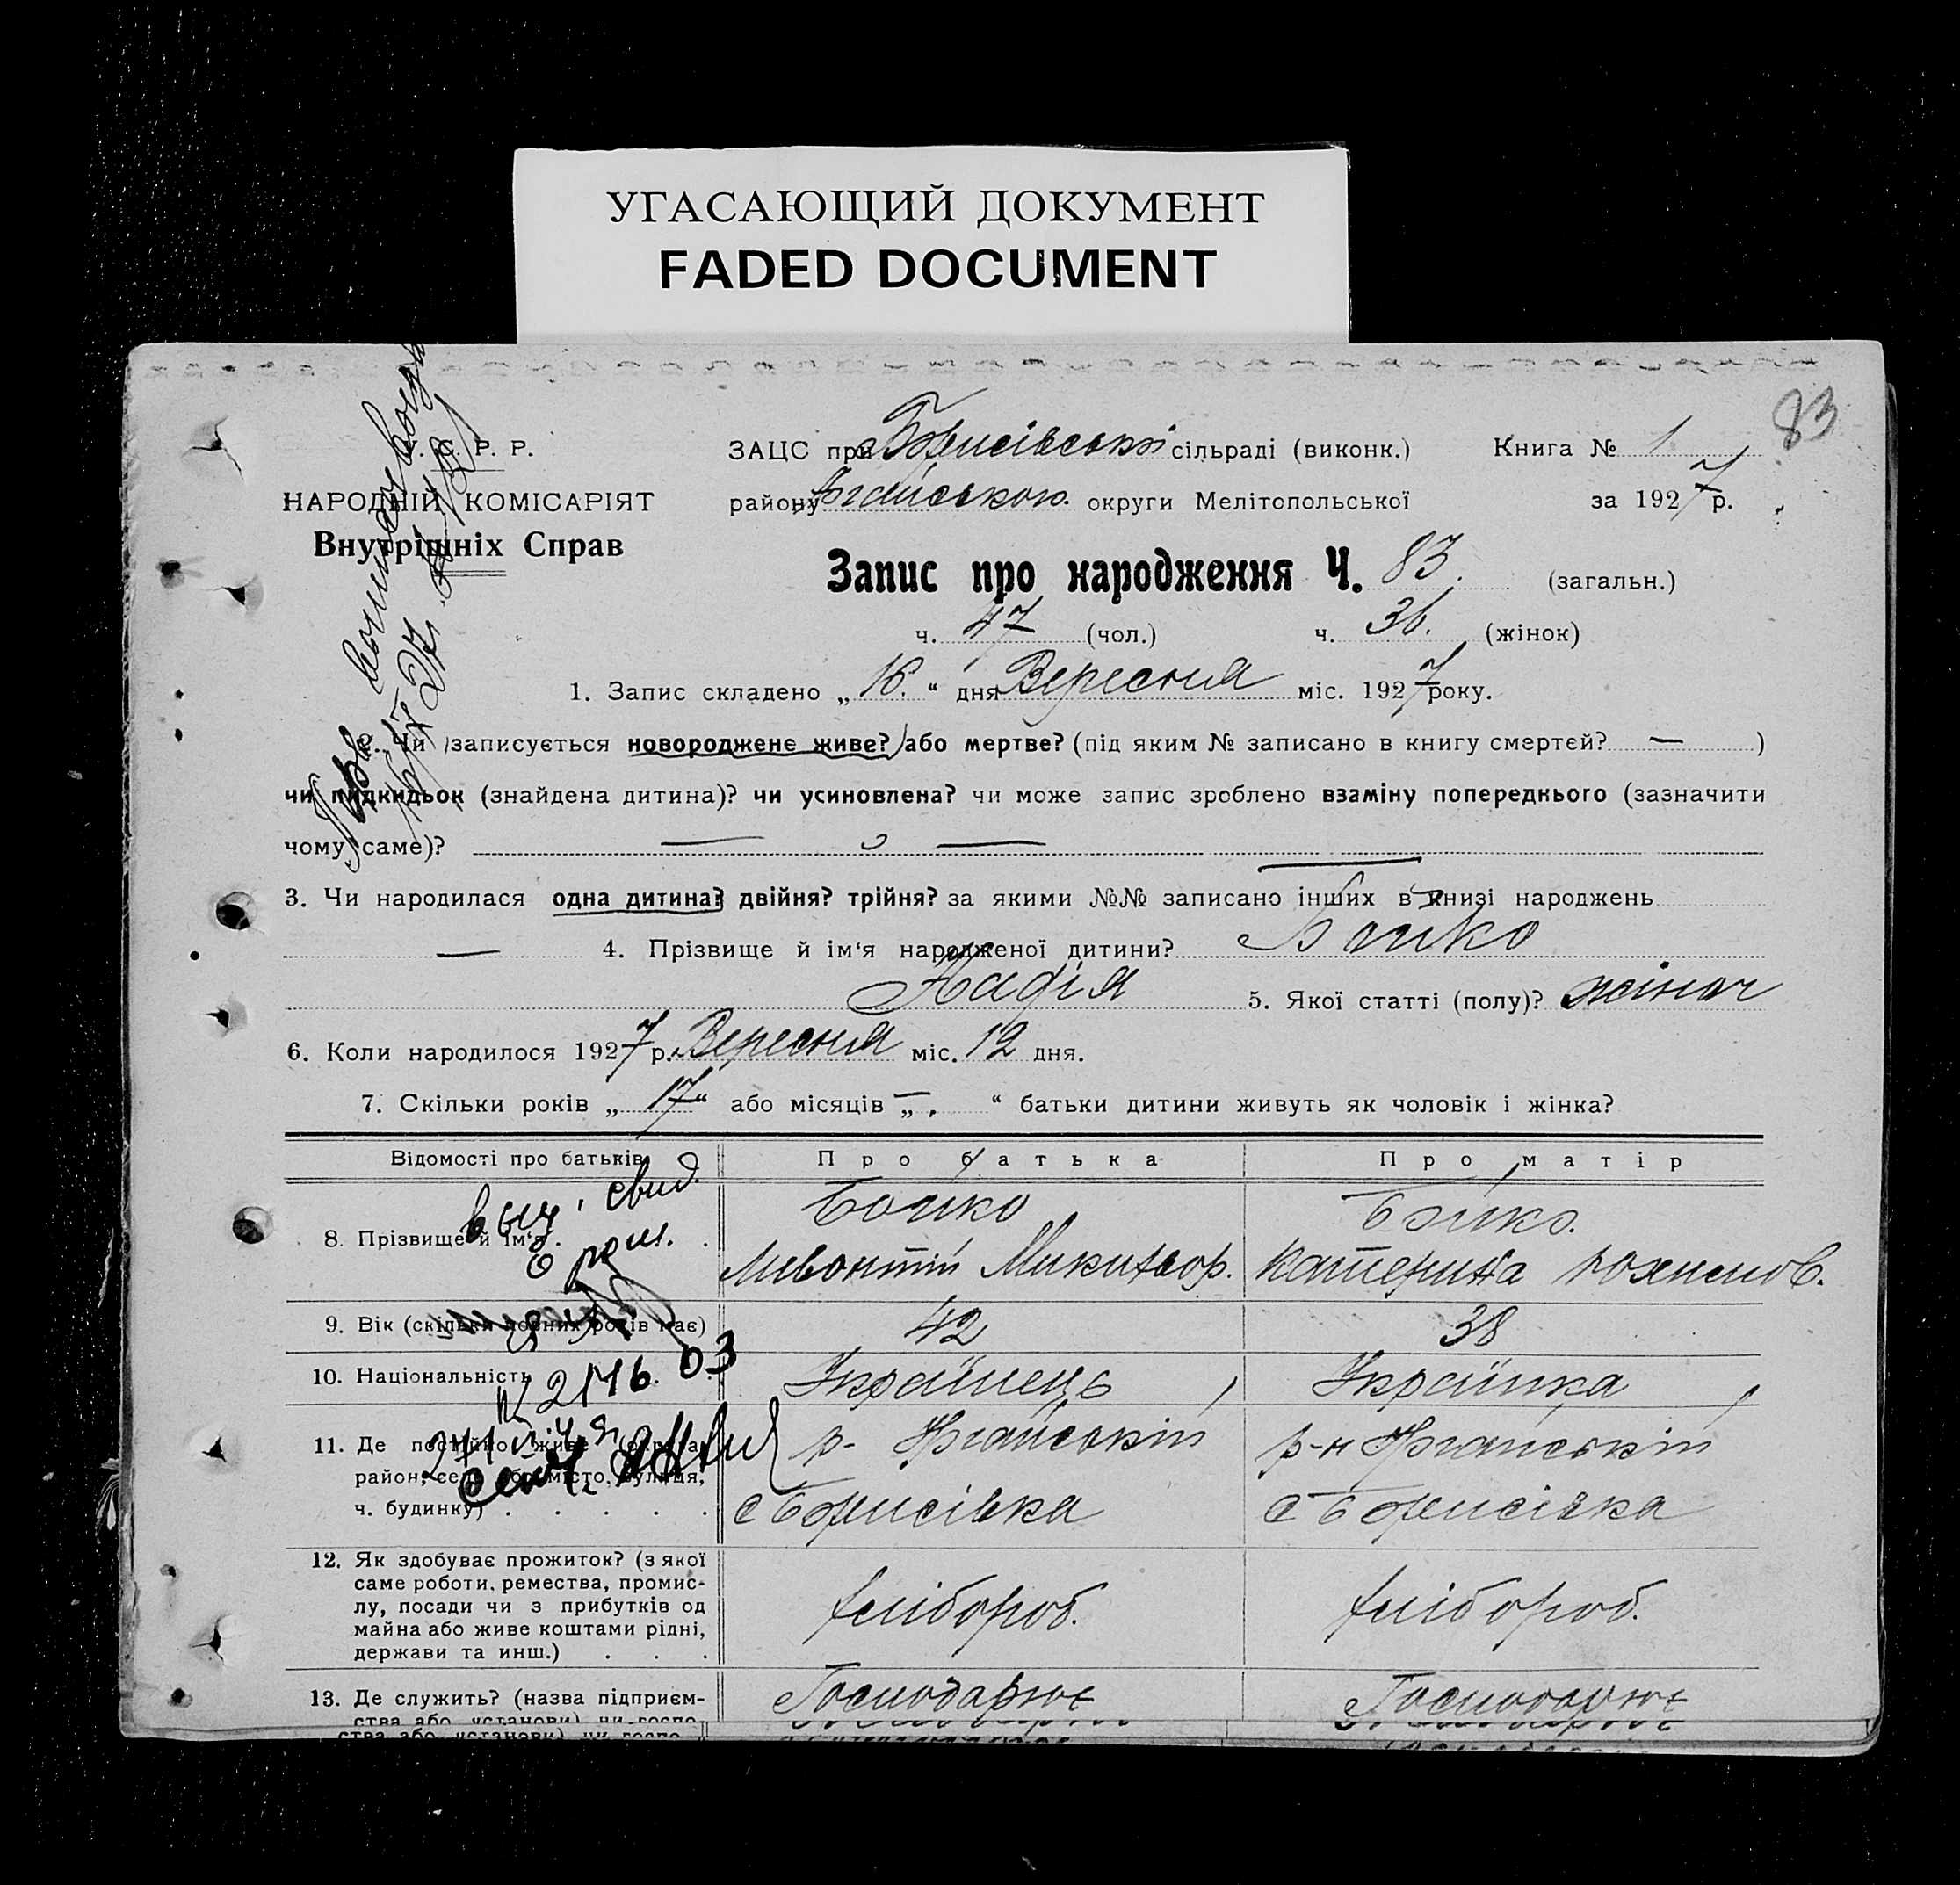 УГАСАЮЩИЙ ДОКУМЕНТ
FADED DOCUMENT
83
С. Р. Р.
ЗАЦС при Борисівській сільраді (виконк.) Книга № 1
НАРОДНІЙ КОМІСАРІЯТ
району округи Мелітопольської за 1927 р.
Внутрішніх Справ
Запис про народження Ч. 83. (загальн.)
ч. 47 (чол.) ч. 36. (жінок)
1. Запис складено „16.“ дня Вересня міс. 1927 року.
Чи записується новороджене живе? або мертве? (під яким № записано в книгу смертей? — )
чи підкидьок (знайдена дитина)? чи усиновлена? чи може запис зроблено взаміну попереднього (зазначити
чому саме)? — —
3. Чи народилася одна дитина? двійня? трійня? за якими №№ записано інших в книзі народжень
— 4. Прізвище й ім‘я народженої дитини? Бойко
Надія 5. Якої статті (полу)? жіноч
6. Коли народилося 1927 р. Вересня міс. 12 дня.
7. Скільки років „17“ або місяців „—“ батьки дитини живуть як чоловік і жінка?
Відомості про батьків Про батька Про матір
выд. свид.
о рож.
8. Прізвище й ім‘я . . Бойко Бойко.
Катерина
9. Вік (скільки повних років має) 42 38
10. Національність Українець, Українка,
11. Де постійно живе (округа, р- р-н
район, село або місто, вулиця,
ч. будинку) . . . . . с Борисівка с Борисівка
12. Як здобуває прожиток? (з якої
саме роботи, ремества, промис-
лу, посади чи з прибутків од
майна або живе коштами рідні,
держави та инш.) . . . хлібороб. хлібороб.
13. Де служить? (назва підприєм- Господарює Господарює
ства або установи) чи госпо-
ства або установи) чи госпо-